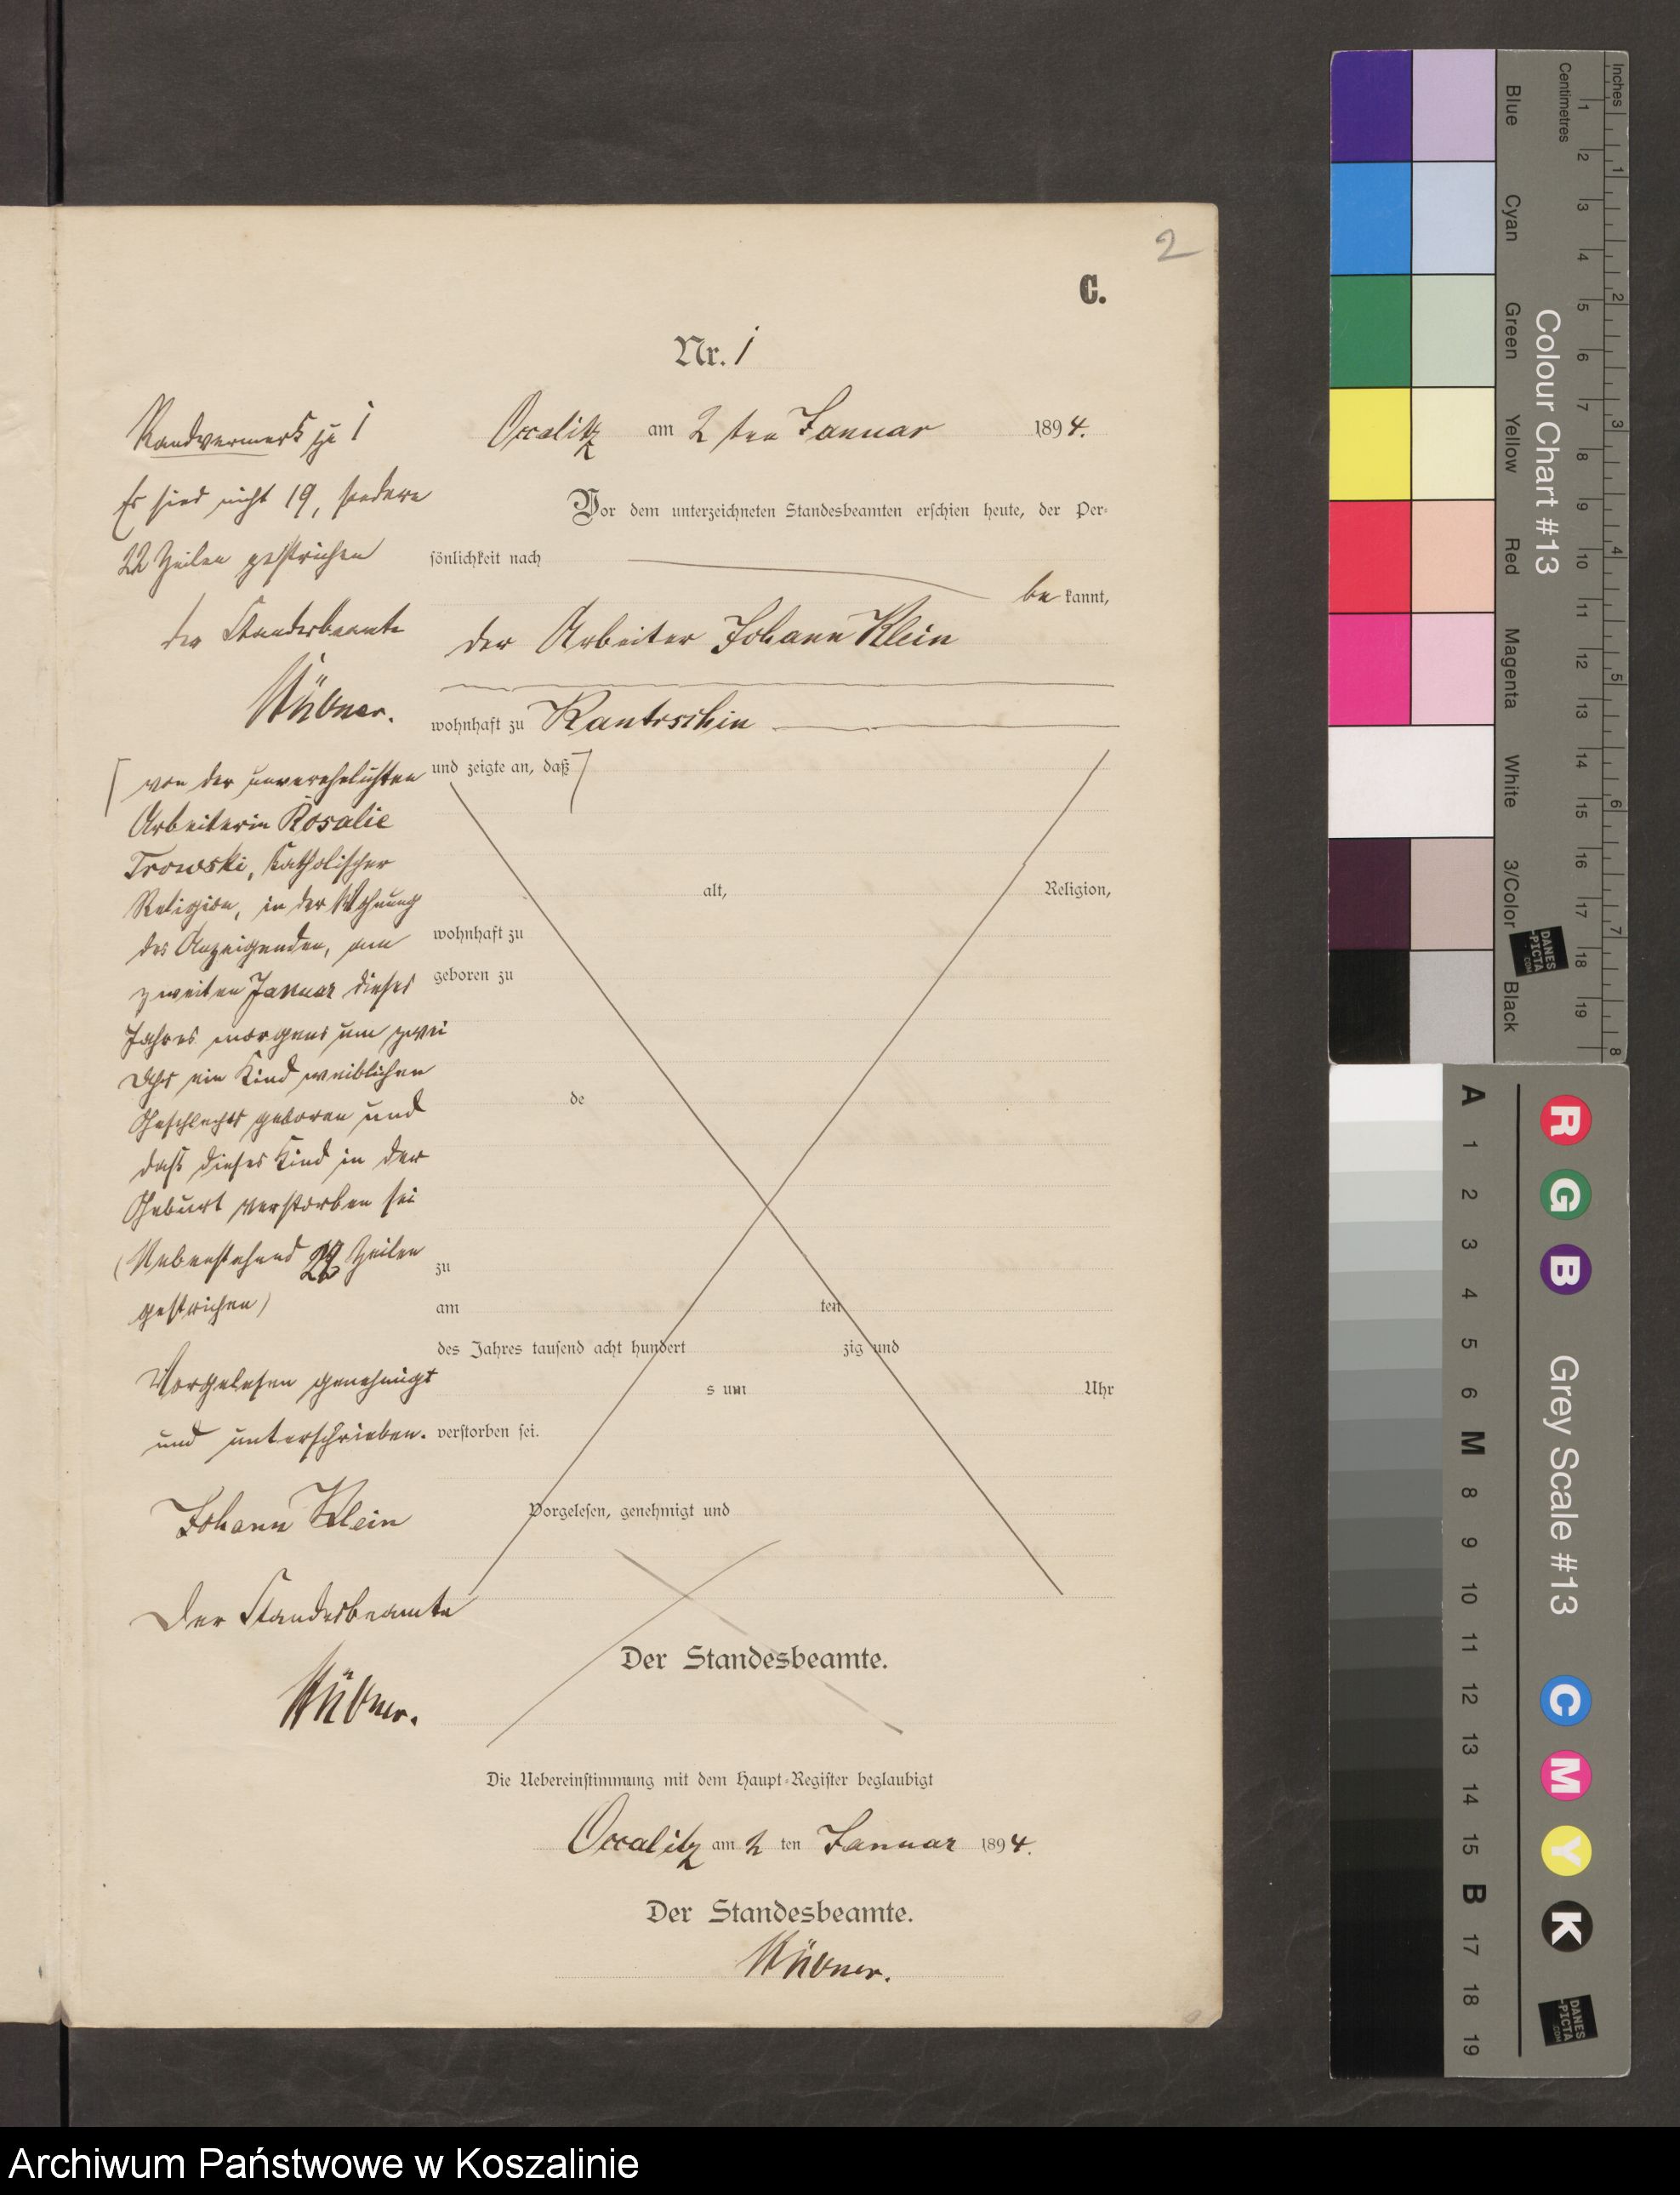 2
C.
Nr. 1
Occalitz am 2 ten Januar 1894.
Vor dem unterzeichneten Standesbeamten erschien heute, der Per-
sönlichkeit nach
be kannt,
der Arbeiter Johann Klein
wohnhaft zu Kantrschin
und zeigte an, daß
alt, Religion,
wohnhaft zu
geboren zu
de
zu
am ten
des Jahres tausend acht hundert zig und
s um Uhr
verstorben sei.
Vorgelesen, genehmigt und
Der Standesbeamte.
Die Uebereinstimmung mit dem Haupt-Register beglaubigt
Occalitz am 2 ten Januar 1894.
Der Standesbeamte.
Hübner.
Randvermerk zu 1
Es sind nicht 19, sondern
22 Zeilen gestrichen
der Standesbeamte
Hübner.
von der unverehelichten
Arbeiterin Rosalie
Trowski, katholischer
Religion, in der Wohnung
des Anzeigenden, am
zweiten Januar dieses
Jahres morgens um zwei
Uhr ein Kind weiblichen
Geschlechts geboren und
daß dieses Kind in der
Geburt verstorben sei
(Nebenstehend 22 Zeilen
gestrichen)
Vorgelesen genehmigt
und unterschrieben.
Johann Klein
Der Standesbeamte
Hübner.
Inches
Centimetres
1 2 3 4 5 6 7 8
1 2 3 4 5 6 7 8 9 10 11 12 13 14 15 16 17 18 19
Colour Chart #13
Blue
Cyan
Green
Yellow
Red
Magenta
White
3/Color
Black
DANES
-PICTA
.COM
Grey Scale #13
R
G
B
C
M
Y
K
A 1 2 3 4 5 6 M 8 9 10 11 12 13 14 15 B 17 18 19
DANES
-PICTA
.COM
Archiwum Państwowe w Koszalinie